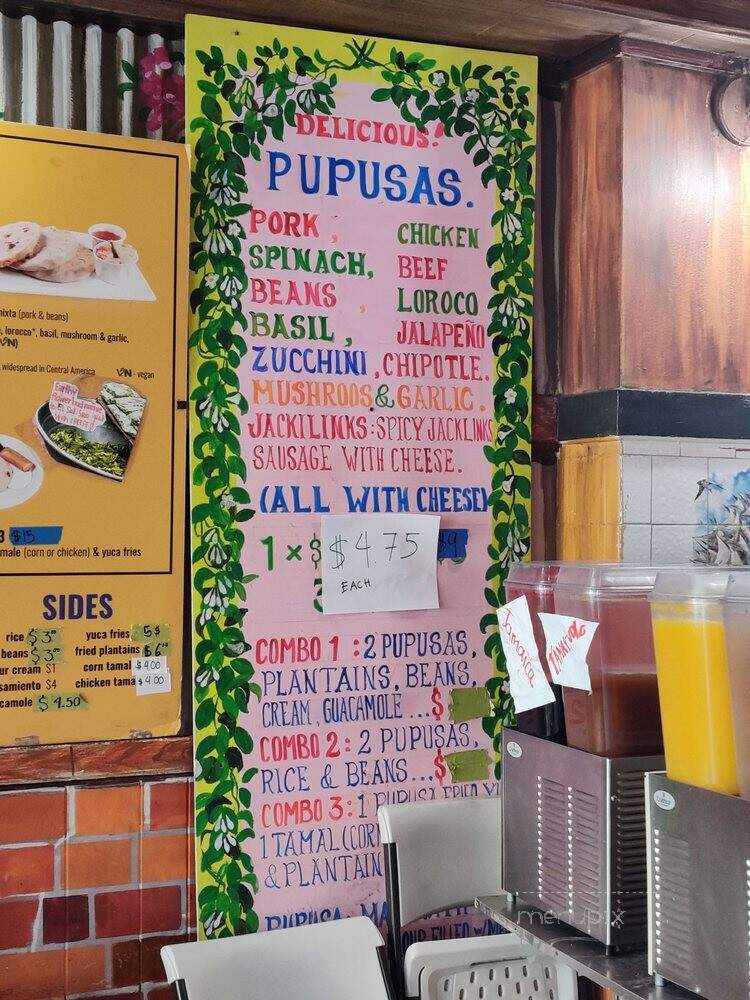 DELICIOUS!
PUPUSAS.
PORK, CHICKEN
SPINACH, BEEF
BEANS, LOROCO
BASIL, JALAPEÑO
ZUCCHINI, CHIPOTLE.
MUSHROOS & GARLIC.
JACKILINKS: SPICY JACKLINKS
SAUSAGE WITH CHEESE.
(ALL WITH CHEESE)
1 x $
$4.75
EACH
$9
COMBO 1: 2 PUPUSAS,
PLANTAINS, BEANS,
CREAM, GUACAMOLE ... $
COMBO 2: 2 PUPUSAS,
RICE & BEANS... $
COMBO 3: 1 PUPUSA FRIED
1 TAMAL (COR
& PLANTAIN
PUPUSA
mixta (pork & beans)
lorocco*, basil, mushroom & garlic,
widespread in Central America
VN - vegan
3 $15
male (corn or chicken) & yuca fries
SIDES
rice $3.00
beans $3.00
ur cream $1
samiento $4
camole $4.50
yuca fries 5$
fried plantains $6.00
corn tamal $4.00
chicken tama $4.00
Jamaica
TAMARINDO
menupix